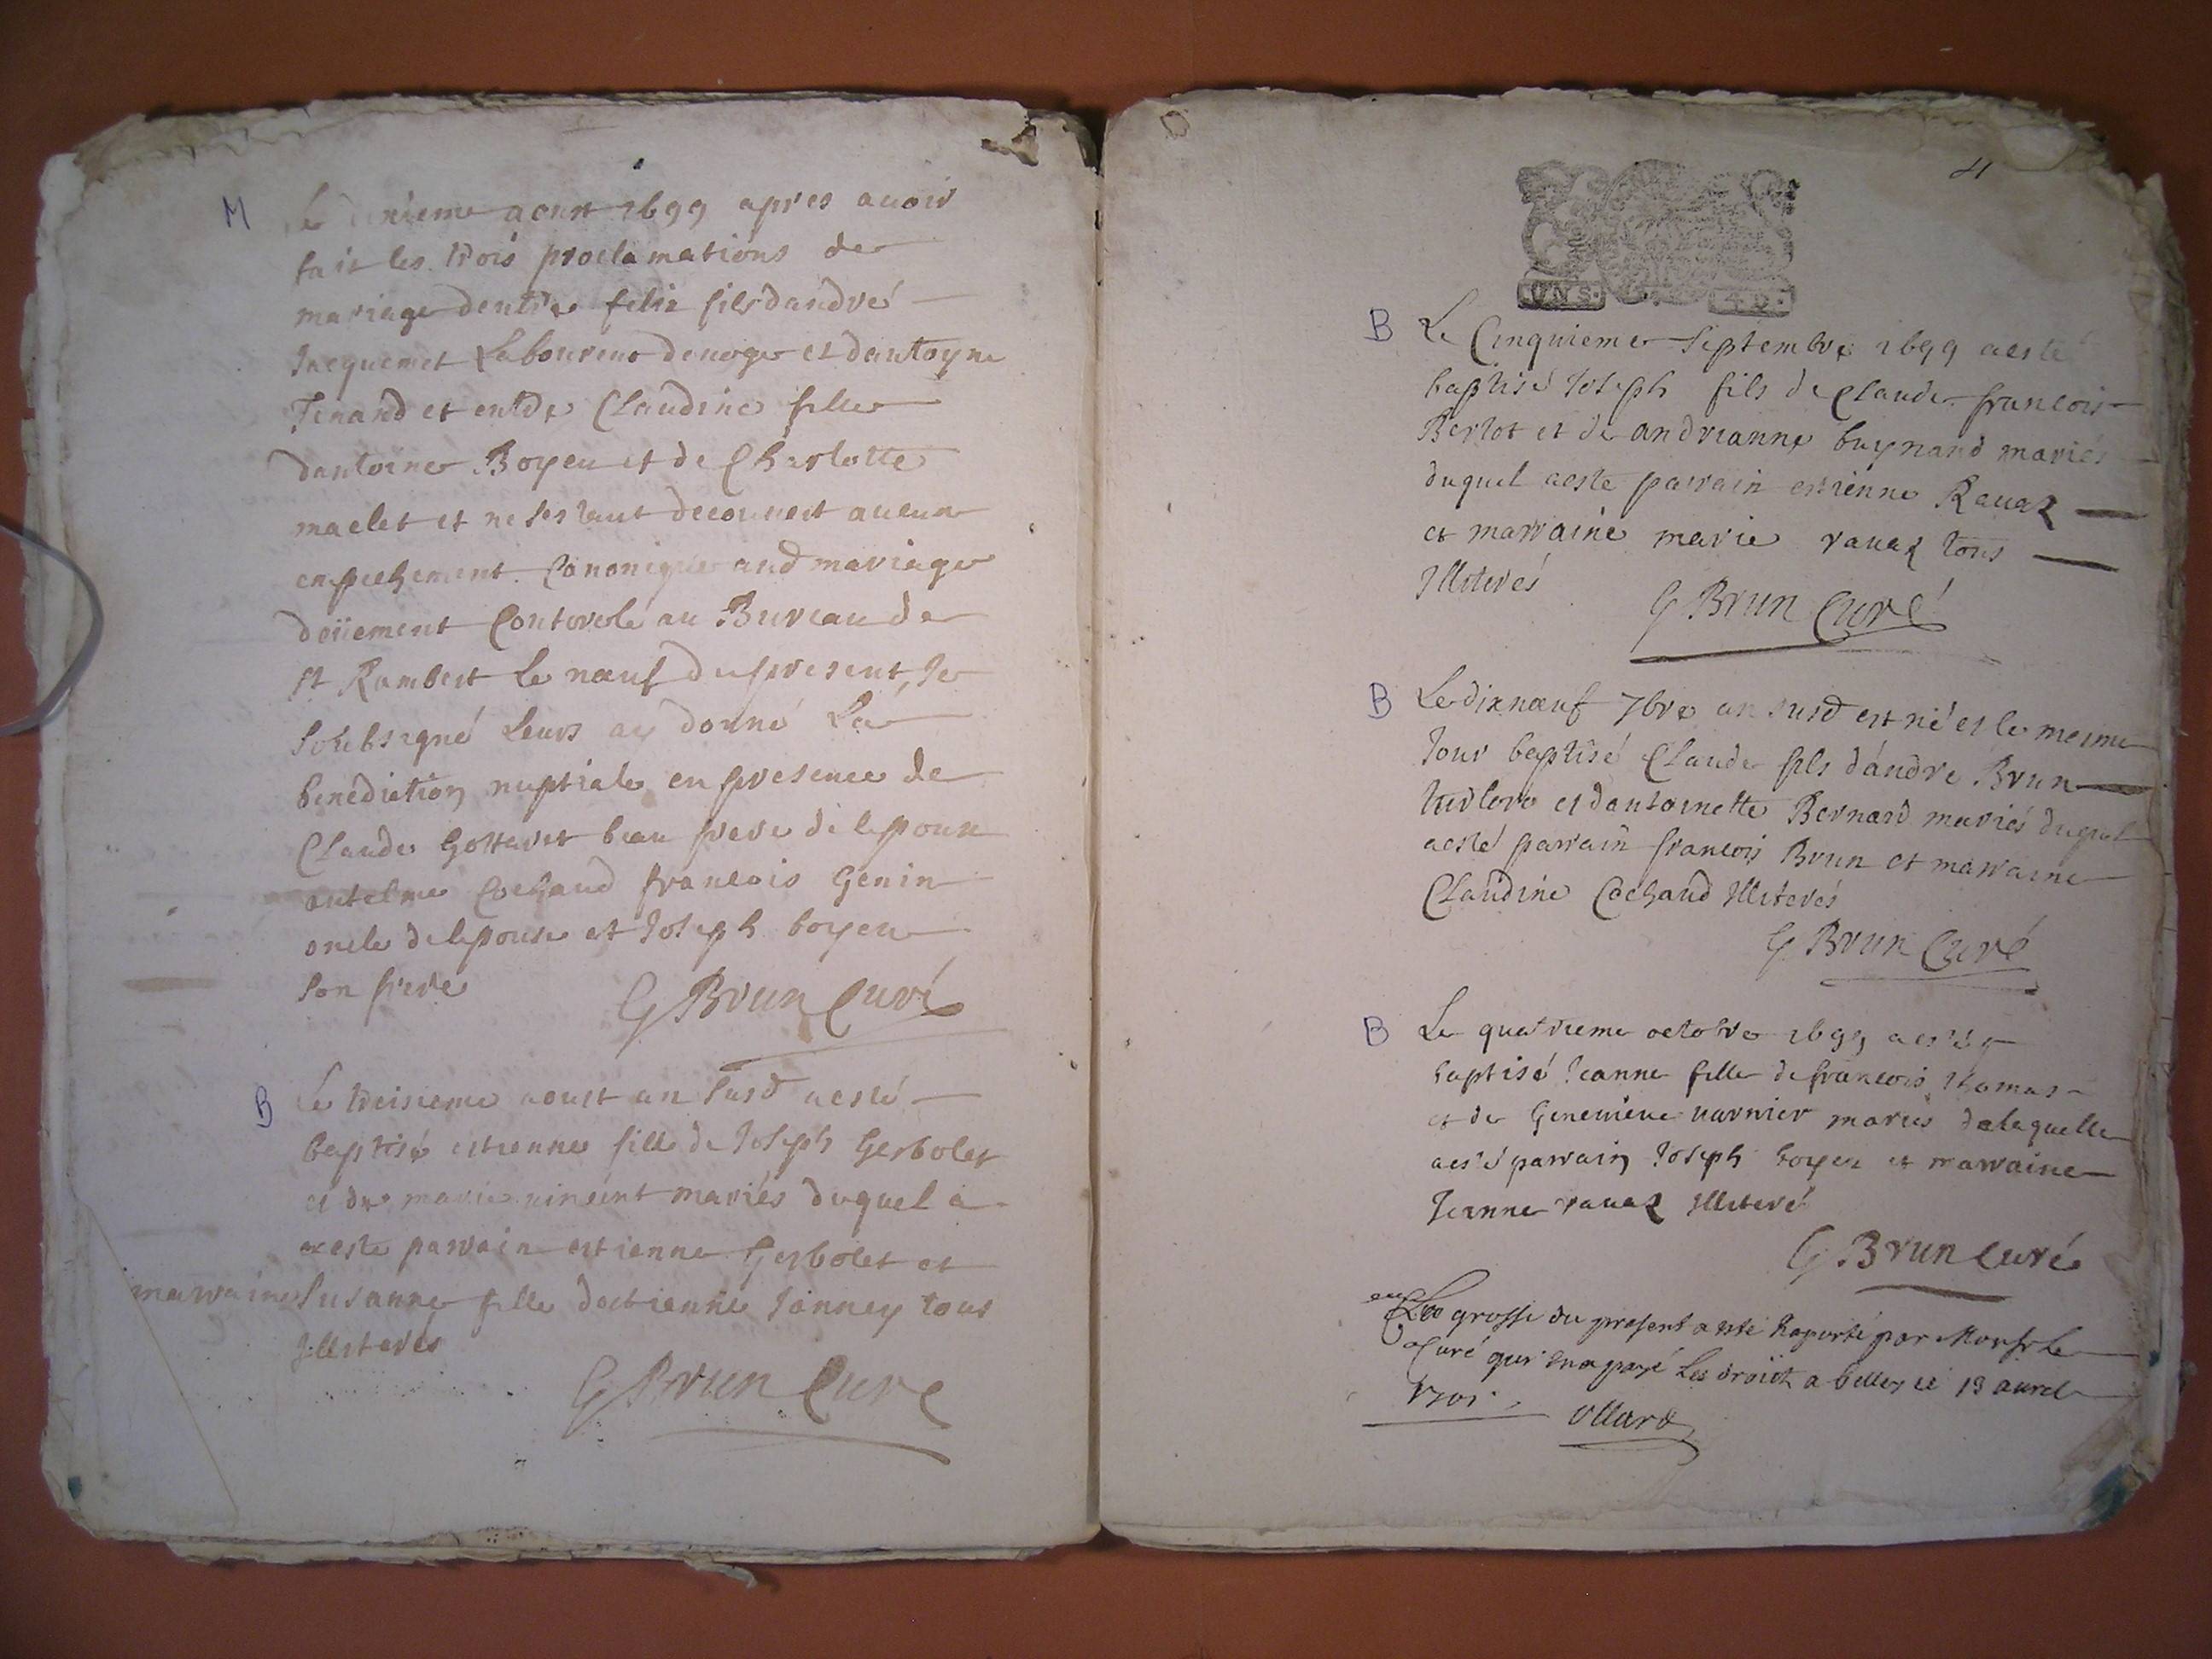 M
Le aoust 1699 apres auoir
fait les trois proclamations de
mariage dentre felix fils dandré
Jnequemet Laboureur et dantoyne
Tenand et entre Claudine fille
dantoine Boyeu et de Charlotte
maclet et ne sestant decouuert aucun
enpechement Canonique aud mariage
deüement Controvole au Bureau de
st Rambert le nœuf du present, Je
soubsigné leurs ay donné La
benediction nuptiale en presence de
Claude Gottaret beau frere de lepoux
antelme Cochaud francois Genin
oncle de lepouse et Joseph boyeu
son frere
G Brun Curé
B
Le treisieme aoust an susd aesté
baptisé estienne fille de Joseph Gerbolet
et de marie uinsent mariés duquel a
aeste parrain estienne Gerbolet et
marraine Susanne fille destienne Janney tous
Jlliterés
G Brun Cure
UN S. 4 D.
B
Le Cinquieme Septembre 1699 aesté
baptisé Joseph fils de Claude francois
Berlot et de andrianne buynand mariés
duquel aeste parrain estienne Rauaz
et marraine marie rauaz tous
Jlliterés
G Brun Curé
B
Le dixnœuf 7bre an susd est né et le mesme
Jour baptisé Claude fils dándre Brun
et dantoinette Bernard mariés duquel
aesté parrain francois Brun et marraine
Claudine Cochaud Jlliterés
G Brun Curé
B
Le quatrieme octobre 1699 aesté
baptisé Jeanne fille de francois thomas
et de Geneuieue uarnier mariés delaquelle
aesté parrain Joseph boyeu et marraine
Jeanne rauaz Jlliteré
G Brun Curé
grosse du present a esté Raporté par Monsr le
Curé qui ena payé Les droict a belley ce 13 auril
1701
Ollard